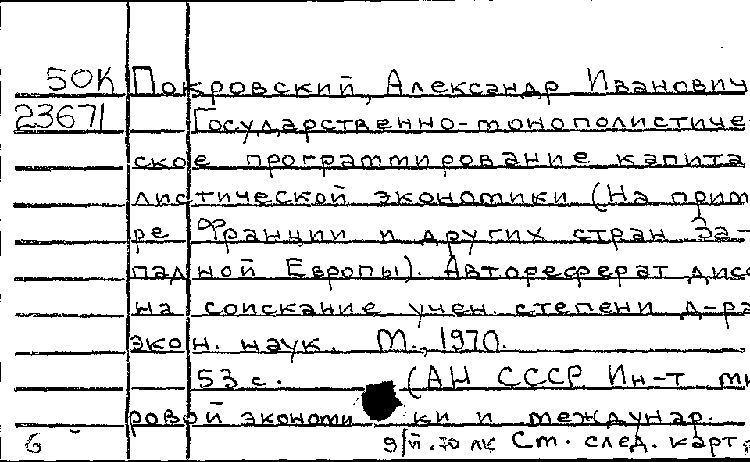 50К Покровский, Александр Иванович
23671 Государственно-монополистиче-
ское программирование капита
листической экономики (На прим
ре Франции и других стран За-
падной Европы). Автореферат дисс
на соискание учен. степени д-ра
экон. наук. М., 1970.
53 с. (АН СССР Ин-т ми
ровой экономи ки и междунар.
6 См. след. карт.